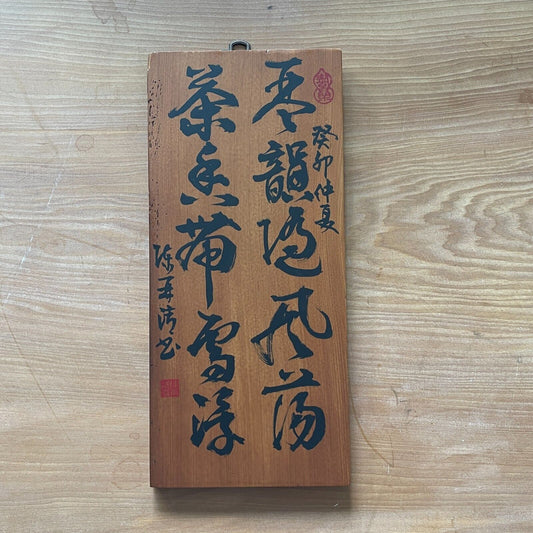 琴韻隨風蕩
癸卯仲夏
茶香帶雪浮
陳
書